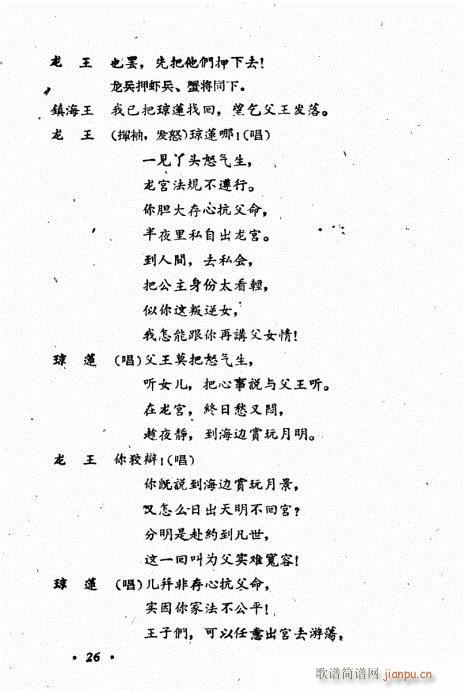 龙　王　也罢，先把他們押下去！
龙兵押虾兵、蟹将同下。
鎮海王　我已把琼蓮找回，望乞父王发落。
龙　王　(揮袖，发怒)琼蓮哪！(唱)
一見丫头怒气生，
龙宫法規不遵行。
你胆大存心抗父命，
半夜里私自出龙宫。
到人間，去私会，
把公主身份太看輕，
似你这叛逆女，
我怎能跟你再講父女情！
琼　蓮　(唱)父王莫把怒气生，
听女儿，把心事説与父王听。
在龙宫，終日愁又悶，
趁夜静，到海边賞玩月明。
龙　王　你狡辯！(唱)
你既説到海边賞玩月景，
又怎么日出天明不回宫？
分明是赴約到凡世，
这一回叫为父实难寬容！
琼　蓮　(唱)儿幷非存心抗父命，
实因你家法不公平！
王子們，可以任意出宫去游荡，
· 26 ·
歌谱简谱网 jianpu.cn